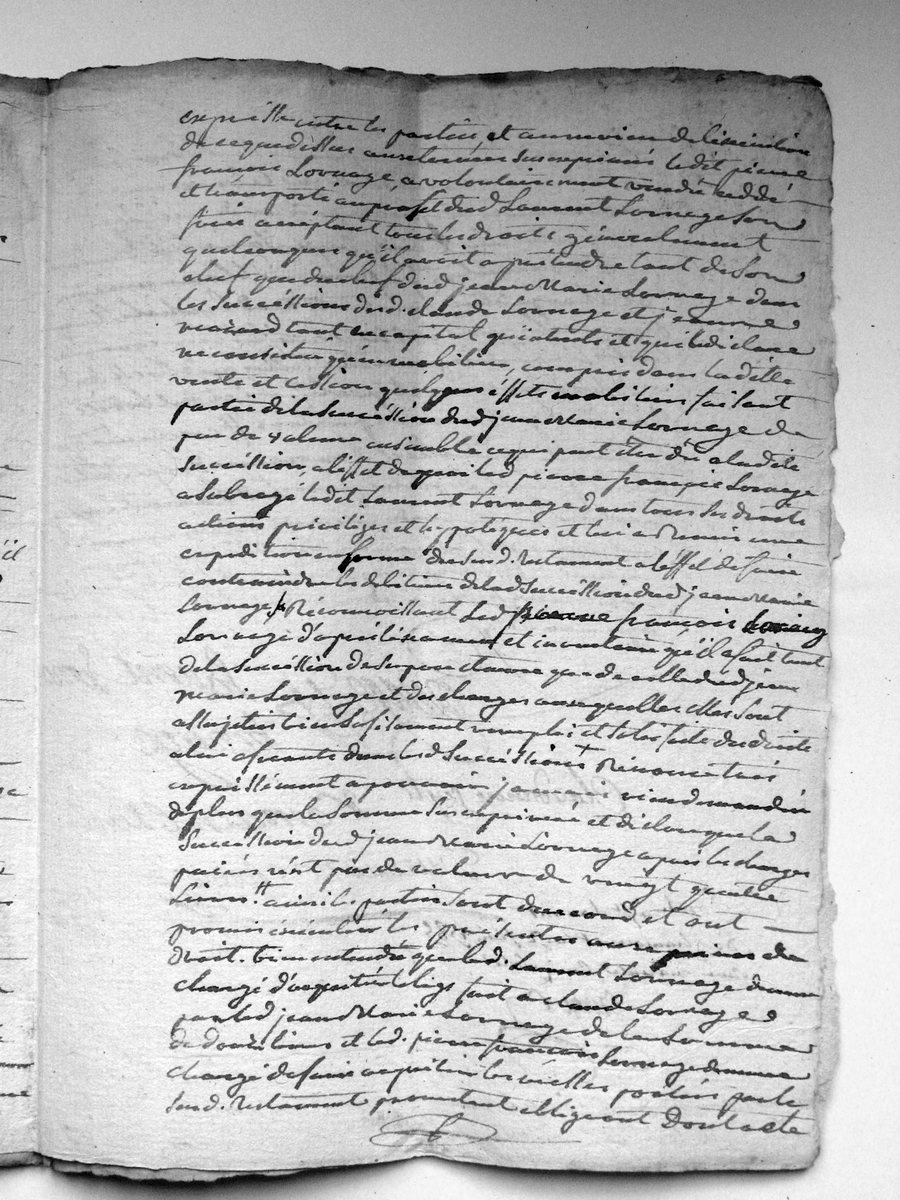 expresse entre les parties, et au moien de l'exécution
de ce que dessus aux termes sus exprimés ledit pierre
françois Lornage, a volontairement vendu ceddé
et transporté au profit dud Laurent Lornage son
frère acceptant tous les droits généralement
quelconques qu'il avoit a prétendre tant de son
chef que du chef dud jean Marie Lornage dans
les successions dud. claude Lornage et jeanne
tant en capital qu'interets et que led
reconstitué qu'en mobiliers, compris dans la ditte
vente et cession quelques éffets mobiliers faisant
partie de la Succéssion dud jean Marie Lornage de
peu de valeur ensemble ce qui peut etre dû a la dite
succéssion, a l'éffet de quoi led pierre françois Lornage
a Subrogé ledit Laurent Lornage dans tous ses droits
actions priviléges et hypoteques et lui a Remis une
expedition en forme dud sud. testament a l'éffet de faire
contraindre les débiteurs de lad Succéssion dud jean Marie
Lornage, Réconnoissant led pierre françois
Lornage d'apres l'éxamen et inventaire qu'il a fait tant
de la Succéssion de ses pere et mere que de celle dud jean
Marie Lornage et des charges auxquelles elles sont
assujeties bien sufisament rempli et satisfait des droits
a lui aferants dans lesd Successions Renonce tres
expressément a pouvoir jamais rien demander
de plus que la Somme sus exprimée et déclare que la
Succéssion dud jean Marie Lornage apres les charges
paiées n'est pas de valeur de vingt quatre
Livres tt ainsi les parties sont daccord et ont
promis exécuter les présentes aux peines de
droit. bien entendu que led. Laurent Lornage demeure
chargé d'acquitter le legs fait a claude Lornage
par led jean Marie Lornage de la Somme
de douze livres et led. pierre françois Lornage demeure
chargé de faire acquitter les messes portées par le
sus d. testament promettant obligeant Dont acte